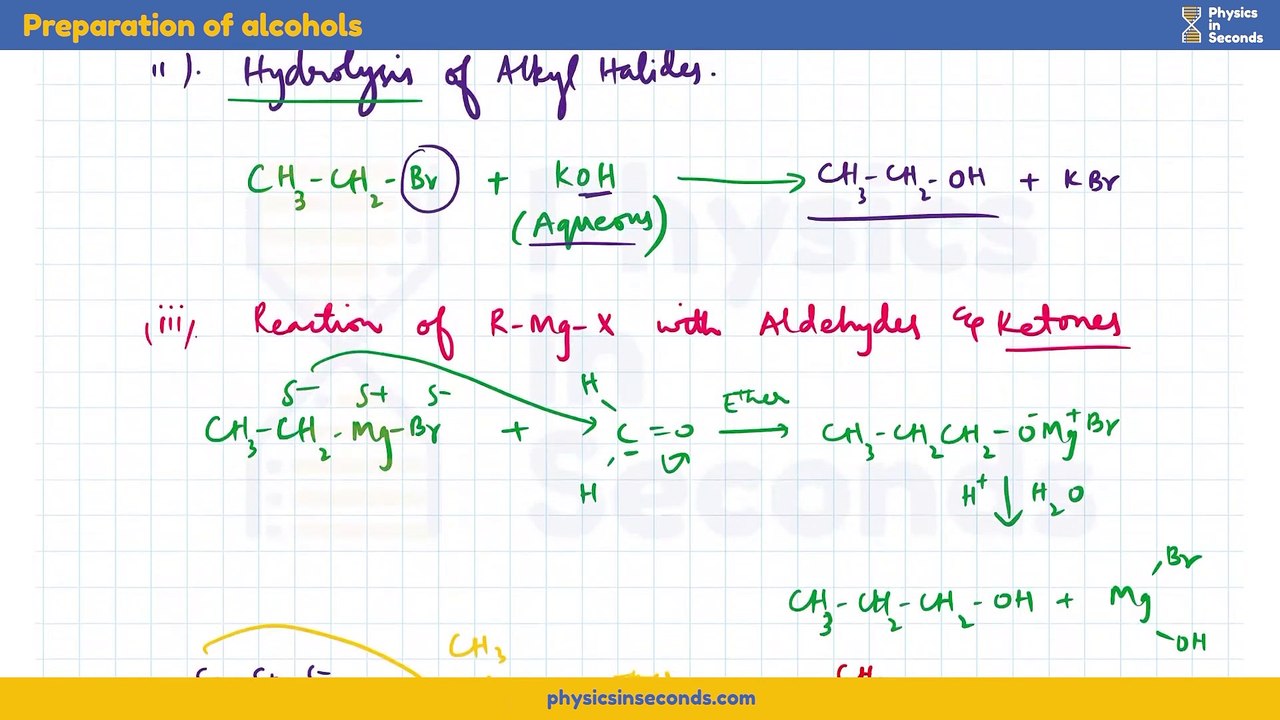 Preparation of alcohols
Physics
in
Seconds
ii). Hydrolysis of Alkyl Halides.
CH3-CH2-Br + KOH → CH3-CH2-OH + KBr
(Aqueous)
(iii). Reaction of R-Mg-X with Aldehydes & Ketones
δ- δ+ δ-
H
CH3-CH2-Mg-Br + C=O Ether → CH3-CH2CH2-O-Mg+Br
H
H+ ↓ H2O
CH3-CH2-CH2-OH + Mg
Br
OH
CH3
CH
physicsinseconds.com